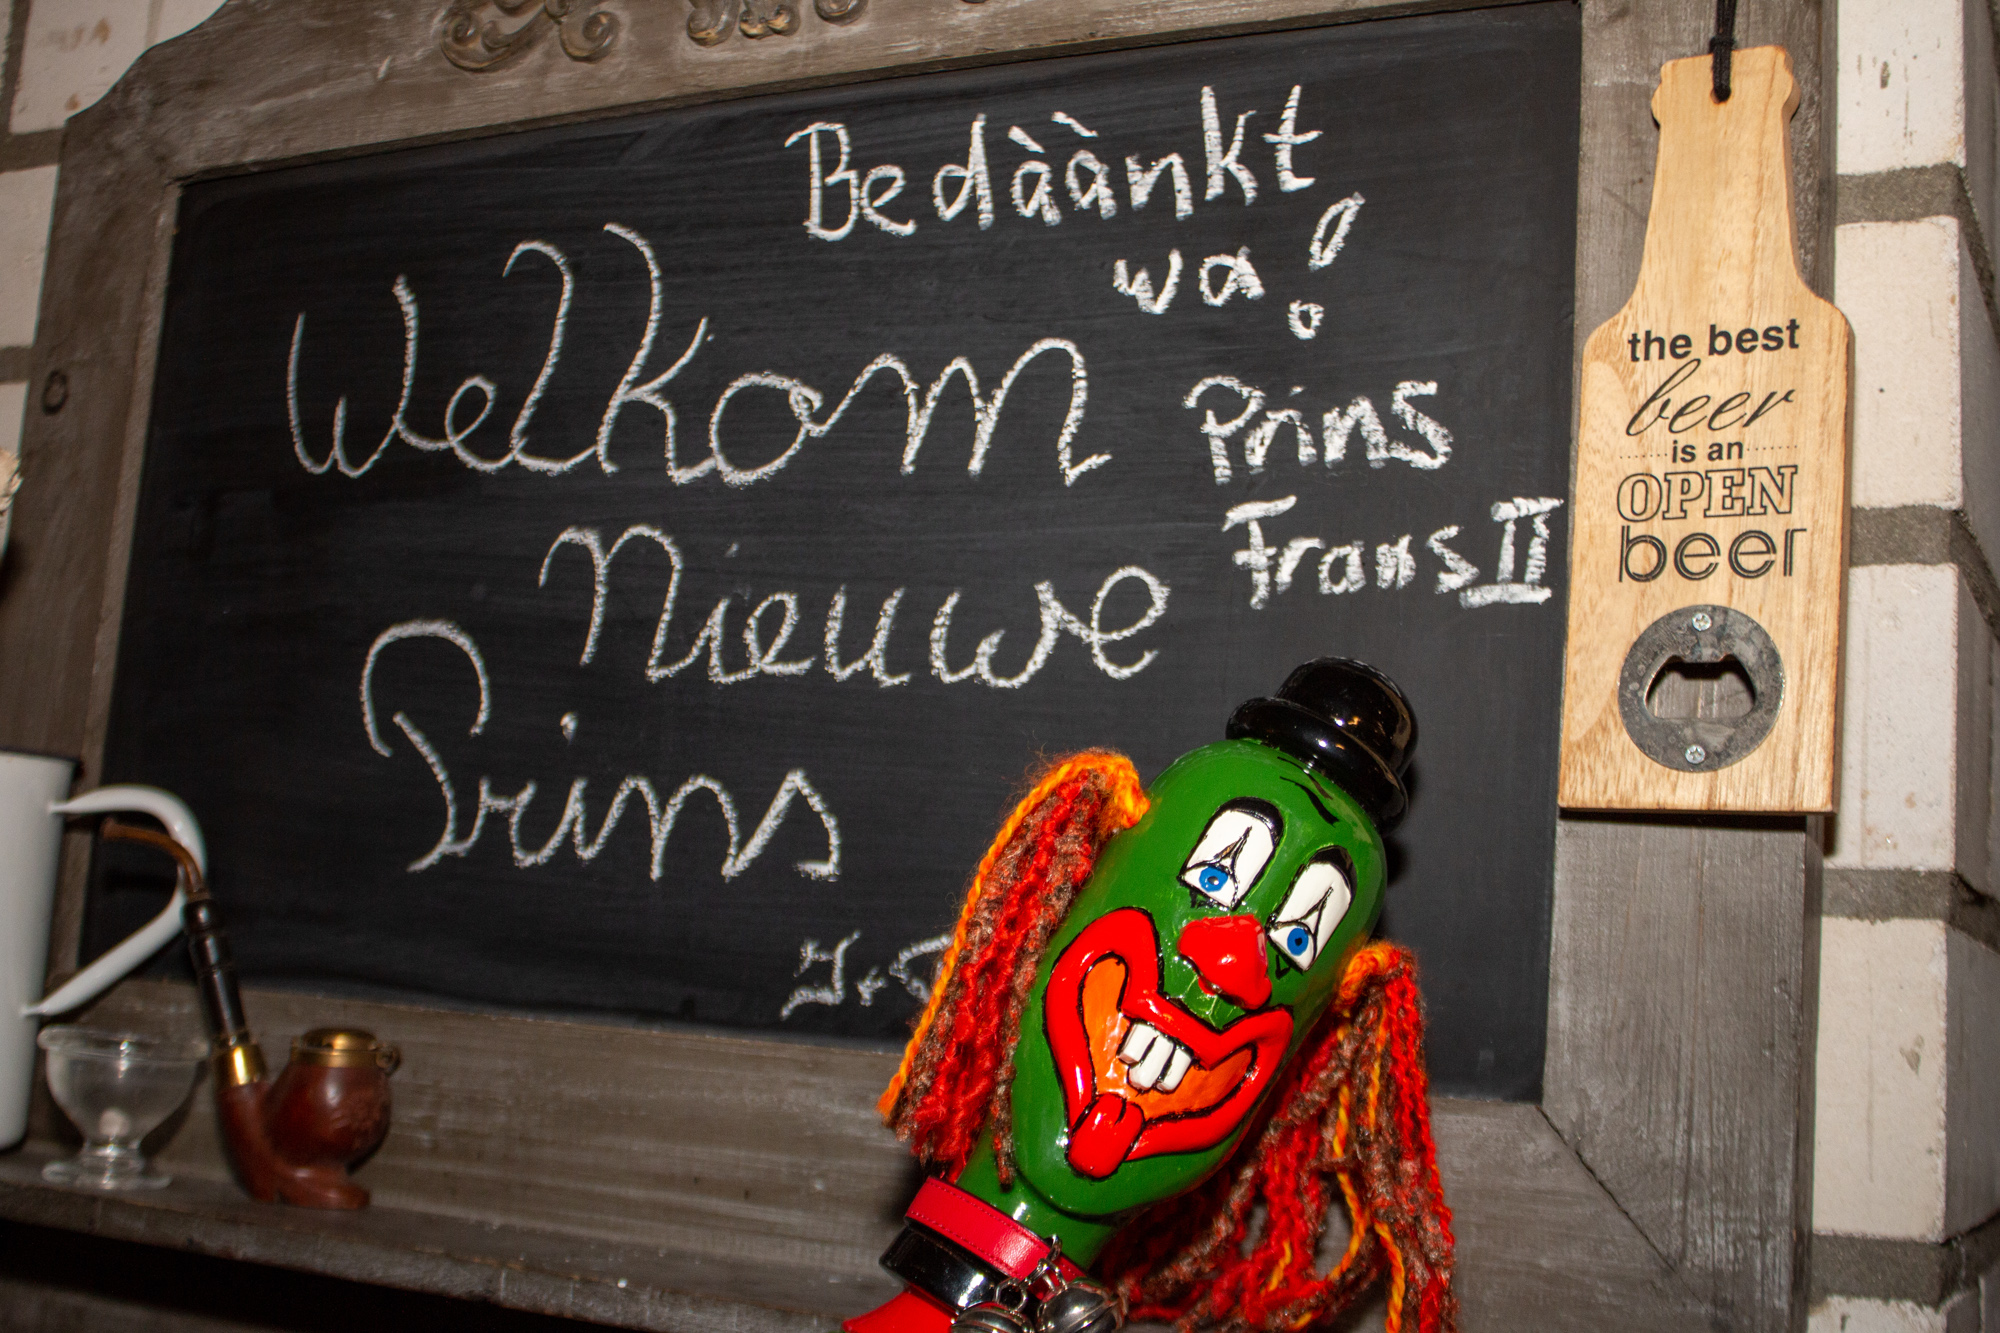 Bedàànkt
wa!
Prins
Frans II
Welkom
Nieuwe
Prins
the best
beer
is an
OPEN
beer